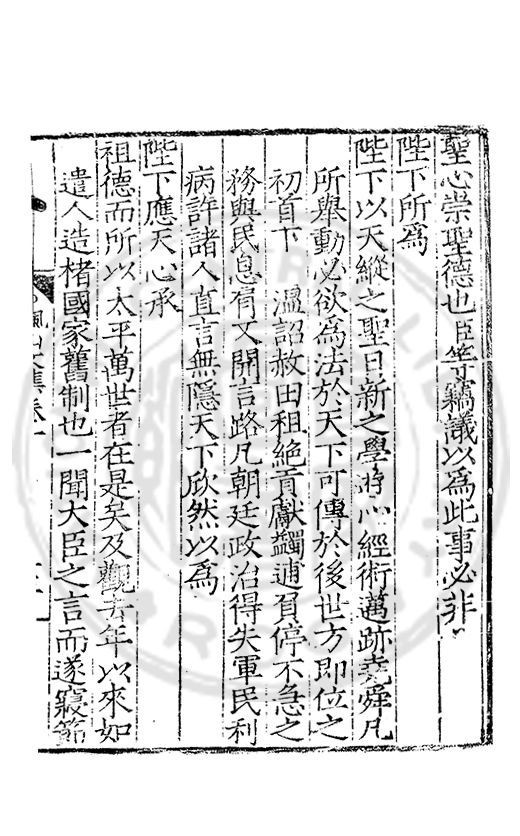 聖心崇聖德也臣等竊議以為此事必非
陛下所為
陛下以天縱之聖日新之學游心經術邁跡堯舜凡
所舉動必欲為法於天下可傳於後世方即位之
初首下 溫詔赦田租絶貢獻蠲逋負停不急之
務與民息肩又開言路凡朝廷政治得失軍民利
病許諸人直言無隱天下欣然以為
陛下應天心承
祖德而所以太平萬世者在是矣及觀去年以來如
遣人造楮國家舊制也一聞大臣之言而遂寢節
楓山文集卷一